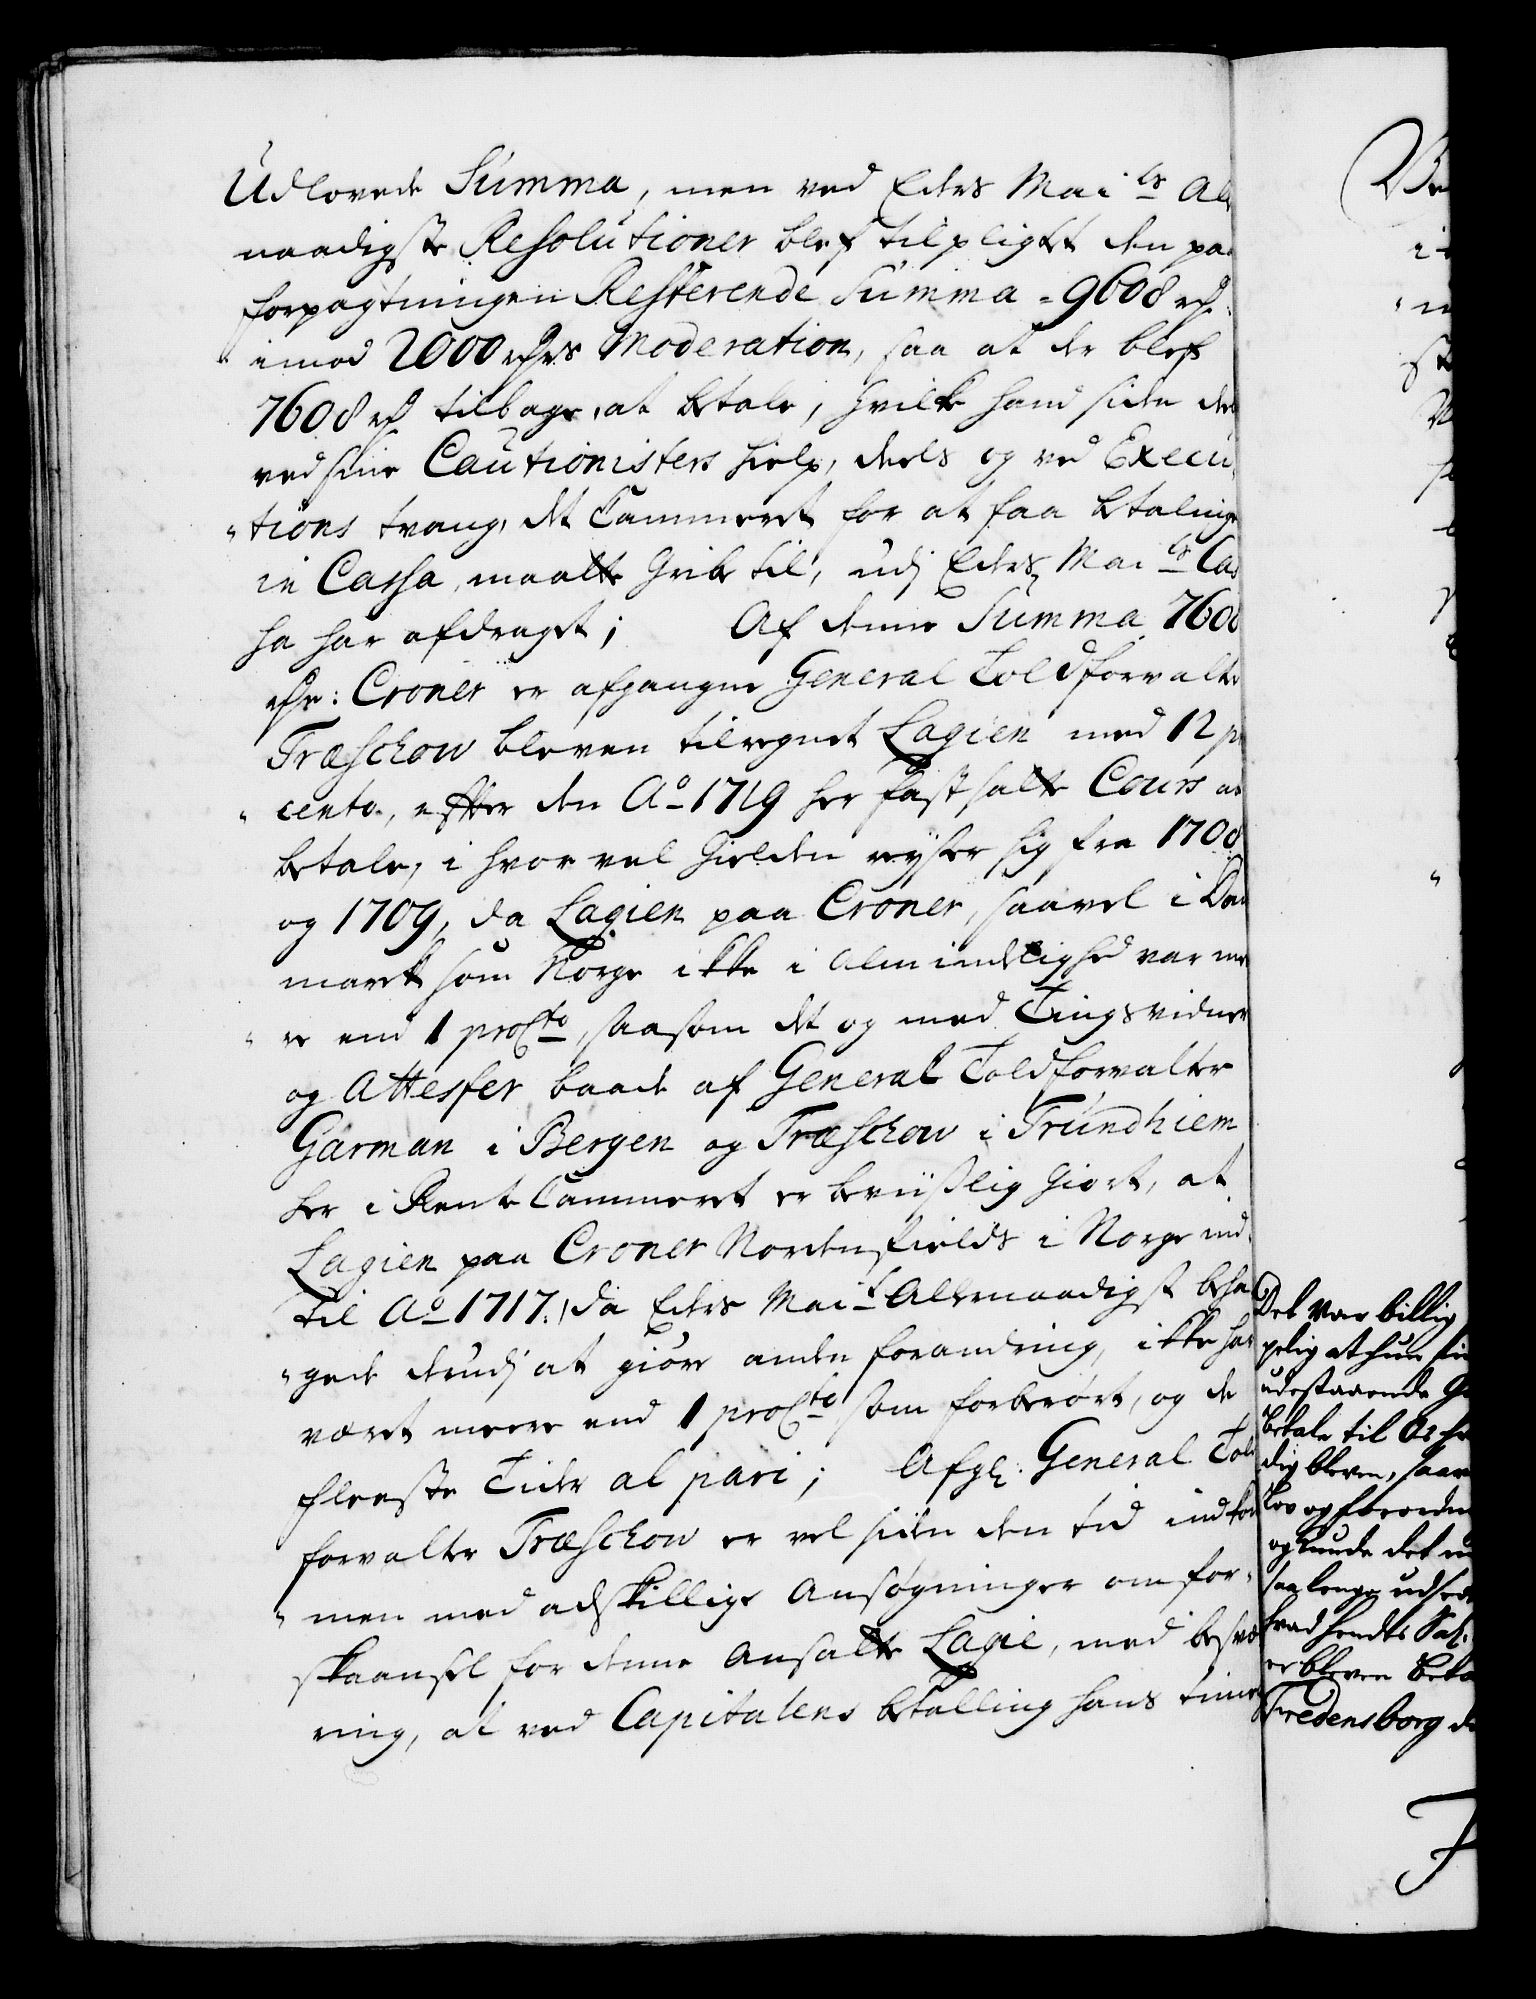 Udlovede Summa, men ved Eders Mai ts Al
naadigste Resolutioner blef tilpligtet den paa
forpagtningen Resterende Summa = 9608 rd:
imod 2000 rdrs Moderation, saa at der blef
7608 rd tilbage, at betale, hvilke hand siden deels
ved sine Cautionisters hielp, deels og ved Execu,
"tions tvang, det Cammeret for at faa betaling
in Cassa, maatte gribe til, udj Eders Mai ts Cas
sa har afdraget; Af denne Summa 7608
rdr: Croner er afgangne General Toldforvalter
Træschow bleven tilregnet Lagien med 12 pr
"cento, efter den Ao 1719 her fastsatte Cours at
betale, i hvor vel gielden reyser sig fra 1708
og 1709, da Lagien paa Croner, saavel i Dan
mark som Norge ikke i Almindelighed var me
"re end 1 proCto, saasom det og med Tingsvidner
og Attester baade af General Toldforvalter
Garman i Bergen og Træschow i Trundhiem
her i Rente Cammeret er beviislig giort, at
Lagien paa Croner Nordenfields i Norge ind,
til Ao 1717. da Eders Mai t Allernaadigst beha
"gede derudj at giøre anden forandring, ikke har
været meere end 1 proCto som forberørt, og de
fleeste Tider al pari; Afgl: General Told
forvalter Træschow er vel siden den tid indkom
"men med adskillige Ansøgninger om for,
skaansel for denne Ansatte Lagie, med besvæ
ring, at ved Capitalens betalling hans timel
Det var billig
pelig at hun sin
udestaaende G
betale til
dig bleven, saa
Lov og forordn
og kunde det
saa lenge udset
hvad hendes Sal:
er bleven beta
Fredensborg d